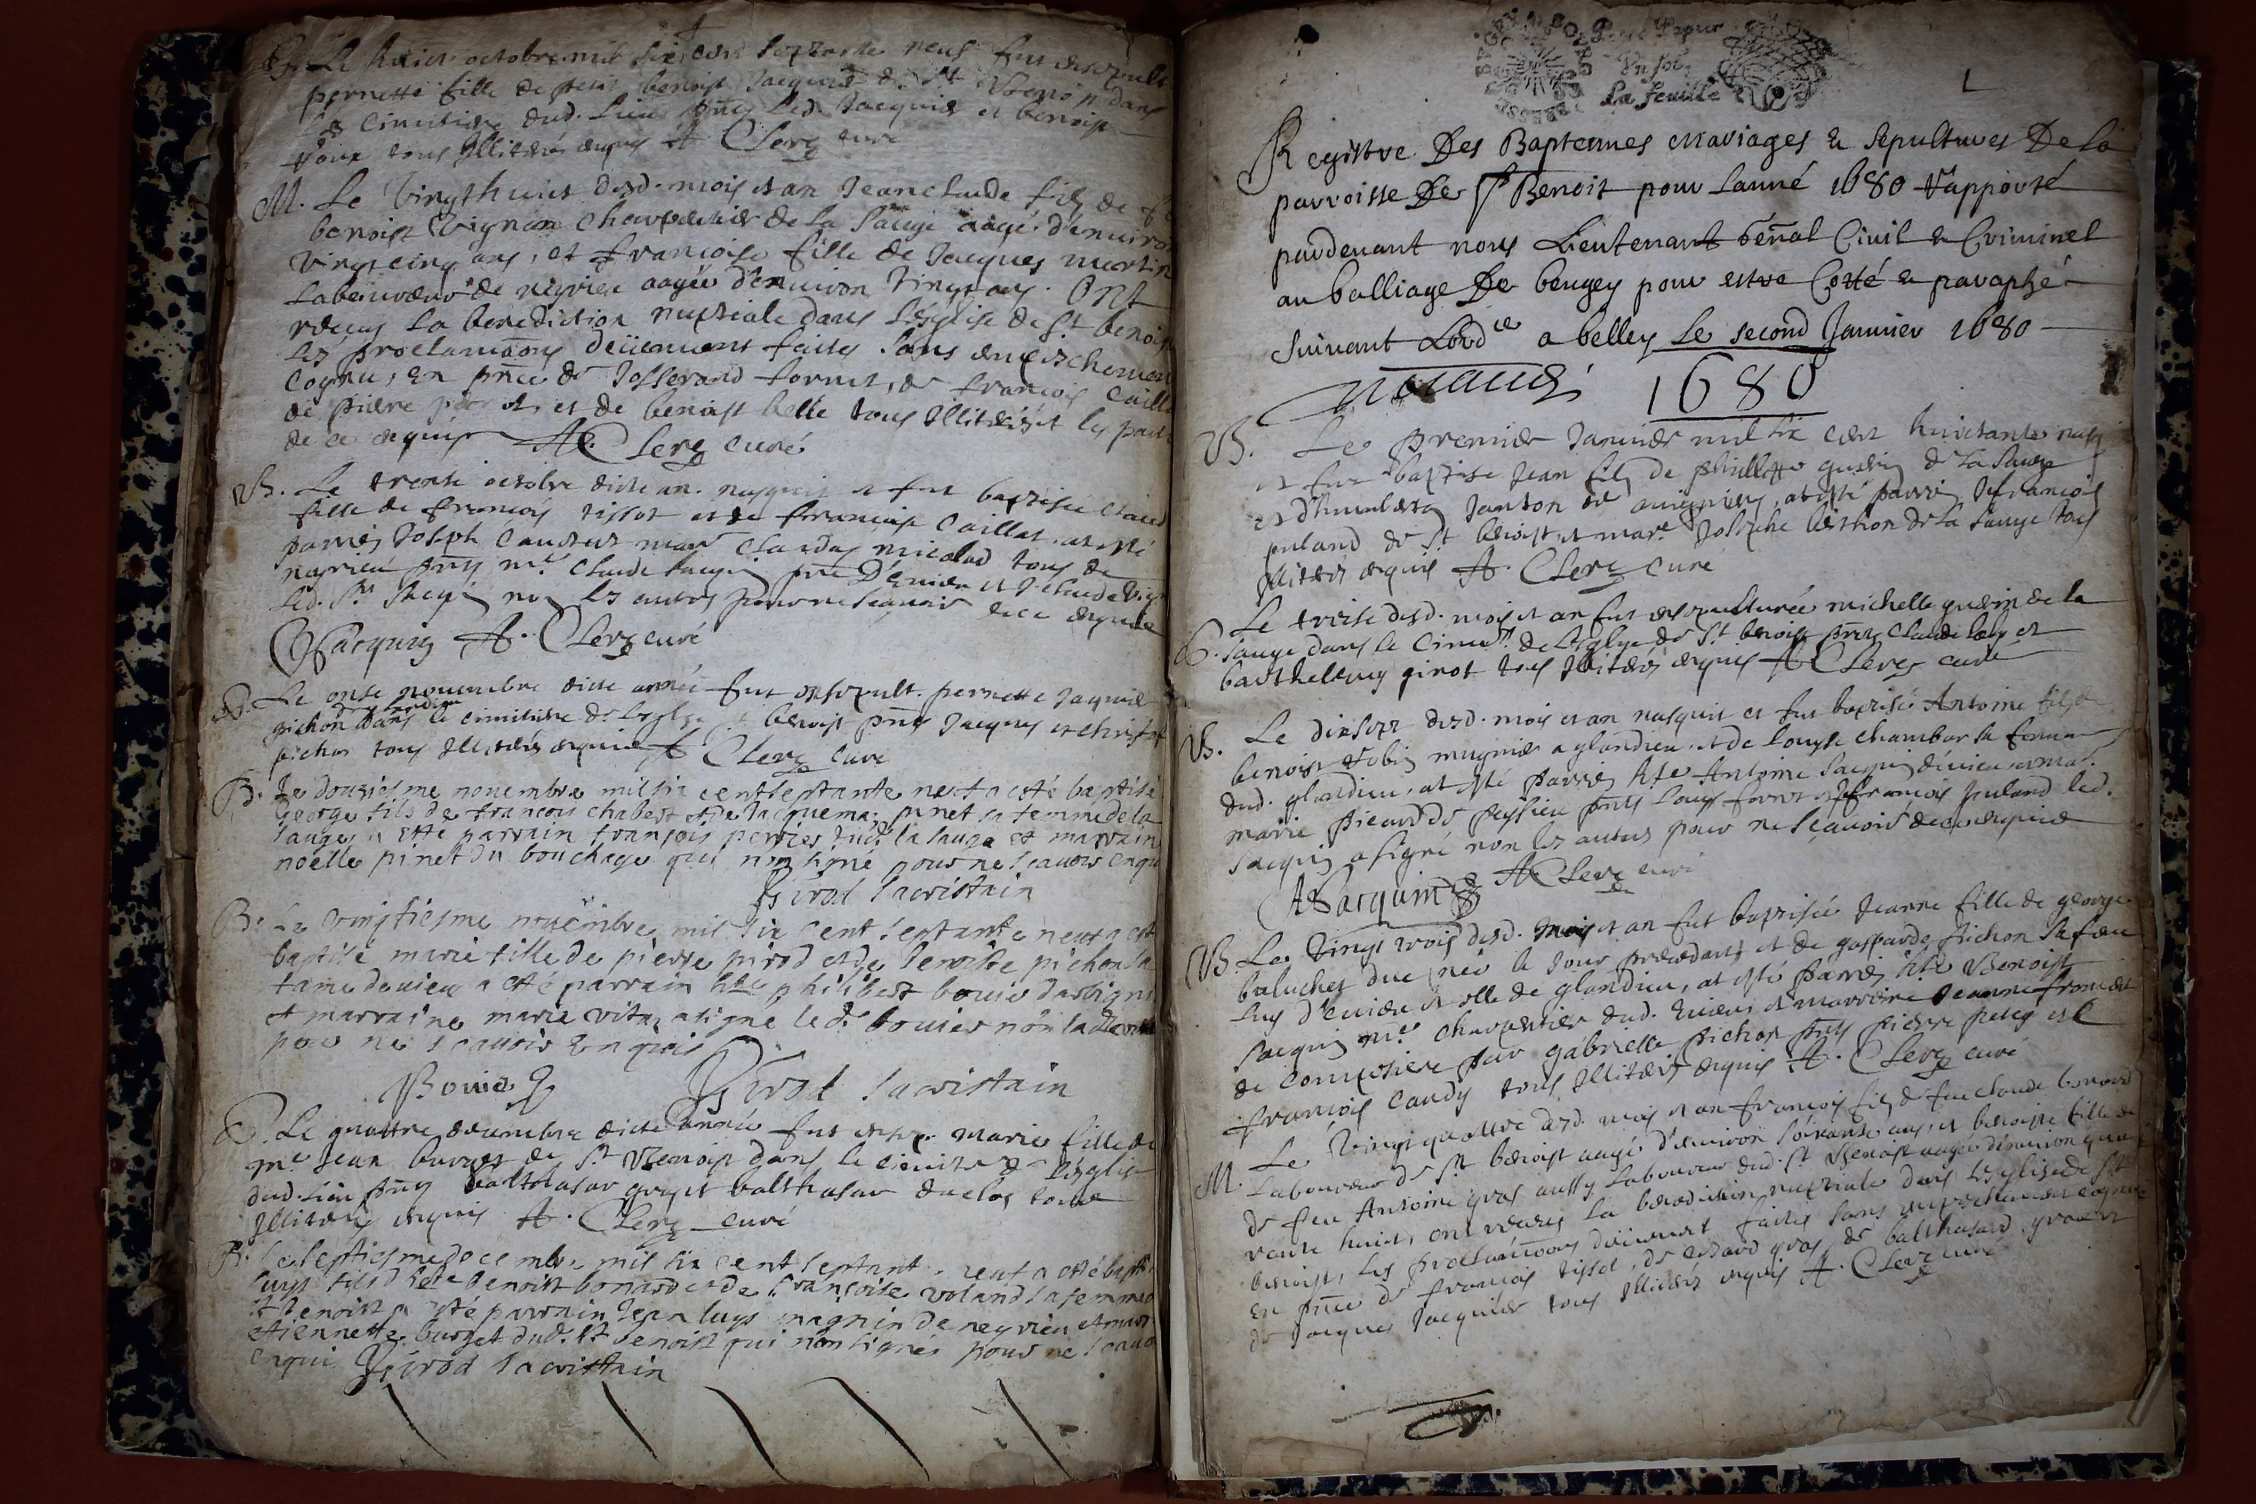 Le huict octobre mil six cent septante neuf fut ensepult
pernette fille de benoist Jacquie de St Benoist dans
Le Cimitiere dud. Lieu pnts Led. Jacquie et benoist
tous Illiterés enquis A Clerq curé
M. Le vingthuict desd. mois et an Jean claude fils de
benoist vignon charpentier de la Sauge aagé d'enuiron
vingtcinq ans, et francoise fille de Jacques martin
Laboureur de neyrieu aagée d'enuiron vingt ans. Ont
receus La benediction nuptiale dans L'esglise de St benoist
les proclamaõns deüement faites sans empeschement
cognu, en pñce de Josserand fornet, de francois Caillat
de pierre et de benoist belle tous Illiterés et les parties
de ce enquis A. Clerq curé
B. Le trente octobre dicte an. nasquit et fut baptisée Claud
fille de francois tissot et de francoise Caillat at esté
parrin Joseph marr. Claudas micoland tous de
neyrieu pnts mre Claude Jacquin pre D'euieu et
Led. Sr Jacqui non les autres pour ne scauoir de ce enquis
Jacquin A. Clerq curé
S. Le onze nouembre dicte année fut ensepult. pernette Jaquie
pichon dans le cimitiere de Lesglise St benoist pnts Jacques et
pichon tous Illiterés enquis A Clerq curé
B. Le douziesme nouembre mil six cent septante neuf a esté baptisé
George fils de francois chabert et de Jaquema pinet sa femme de la
sauge a esté parrain francois perrier dud. la sauge et marraine
noelle pinet du bouchage qui nont signé pour ne scauoir enquis
Girod Sacristain
B. Le vingtiesme nouembre mil six cent septante neuf a esté
baptisé marie fille de pierre pirod et de benoiste pichon sa
fame deuieu a esté parrain hble philibert bouier
et marraine marie vita, a signé le d. bouier non la
pour ne scauoir enquis
Bouier Girod Sacristain
S. Le quattre decembre dicte année fut ensep. marie fille de
mre Jean burget de St Benoist dans le cimitiere de Lesglise
dud. Lieu pnts balthasar gros et balthasar duclos tous
Illiterés enquis A. Clerq curé
B. Le septiesme decembre mil six cent septante neuf a esté baptisé
Luys fils d hble benoist bonard et de francoise roland sa femme
St benoist a esté parrain Jean luys magnin de neyrieu et marr
etiennette burget dud. St benoist qui nont signés pour ne scauoir
enquis Girod Sacristain
Petit Papier
La feuille
1
Registre Des Baptemes Mariages & Sepultures De la
parroisse De St Benoit pour lanné 1680 Rapporté
pardeuant nous Lieutenant Genal Ciuil & Criminel
au balliage De beugey pour estre Cotté & paraphé
Suiuant Lordce a belley Le second Januier 1680
1680
B. Le premier Januier mil six cent huictante nasq
et fut baptisé Jean fils de philippe guerin de la Sauge
et d'humberte Janton de auignieu, at esté parrin francois
puland de St benoist et marr. Josephe berthon de la Sauge tous
Illiterés enquis A. Clerq curé
S. Le treize desd. mois et an fut ensepulturée michelle guerin de la
sauge dans le Cimet. de L'eglise de St benoist pñts Claude et
barthelemy girot tous Illiterés enquis A Clerq curé
B. Le dixsept desd. mois et an nasquit et fut baptisé Antoine fils de
benoist robin mugnier a glandieu, et de Louyse Chambar sa femme
dud. glandieu, at esté parrin hble Antoine Jacquin d'euieu, et mar.
marie picard de peyssieu pnts Louys fornet et francois puland led.
Jacquin a signé non les autres pour ne scauoir de ce enquis
A Jacquin A Clerq curé
B. Le vingt trois desd. mois et an fut baptisée Jeanne fille de george
baluchet duc née le jour precedant, et de gasparde pichon sa fem
luy d'euieu et elle de glandieu, at esté parrin hble Benoist
Jacquin mre charpentier dud. euieu, et marreine Jeanne froment
de Conrosiere par gabrielle pichon pnts pierre petit et
francois Candy tous Illiterés enquis A. Clerq curé
M. Le vingt quattre desd. mois et an francois fils de feu Claude bonard
Laboureur de St benoist aagé d'enuiron soixante ans, et benoiste fille de
de feu Antoine gras aussy Laboureur dud. St Benoist aagée denuiron qua
rante huict, ont receus la benediction nuptiale dans L'eglise de St
benoist, les proclamaõns deüement faites sans empeschement cognu
en pñce de francois tissot, de edoard gras, de balthasard gras et
de Jacques Jacquier tous Illiterés enquis A. Clerq curé